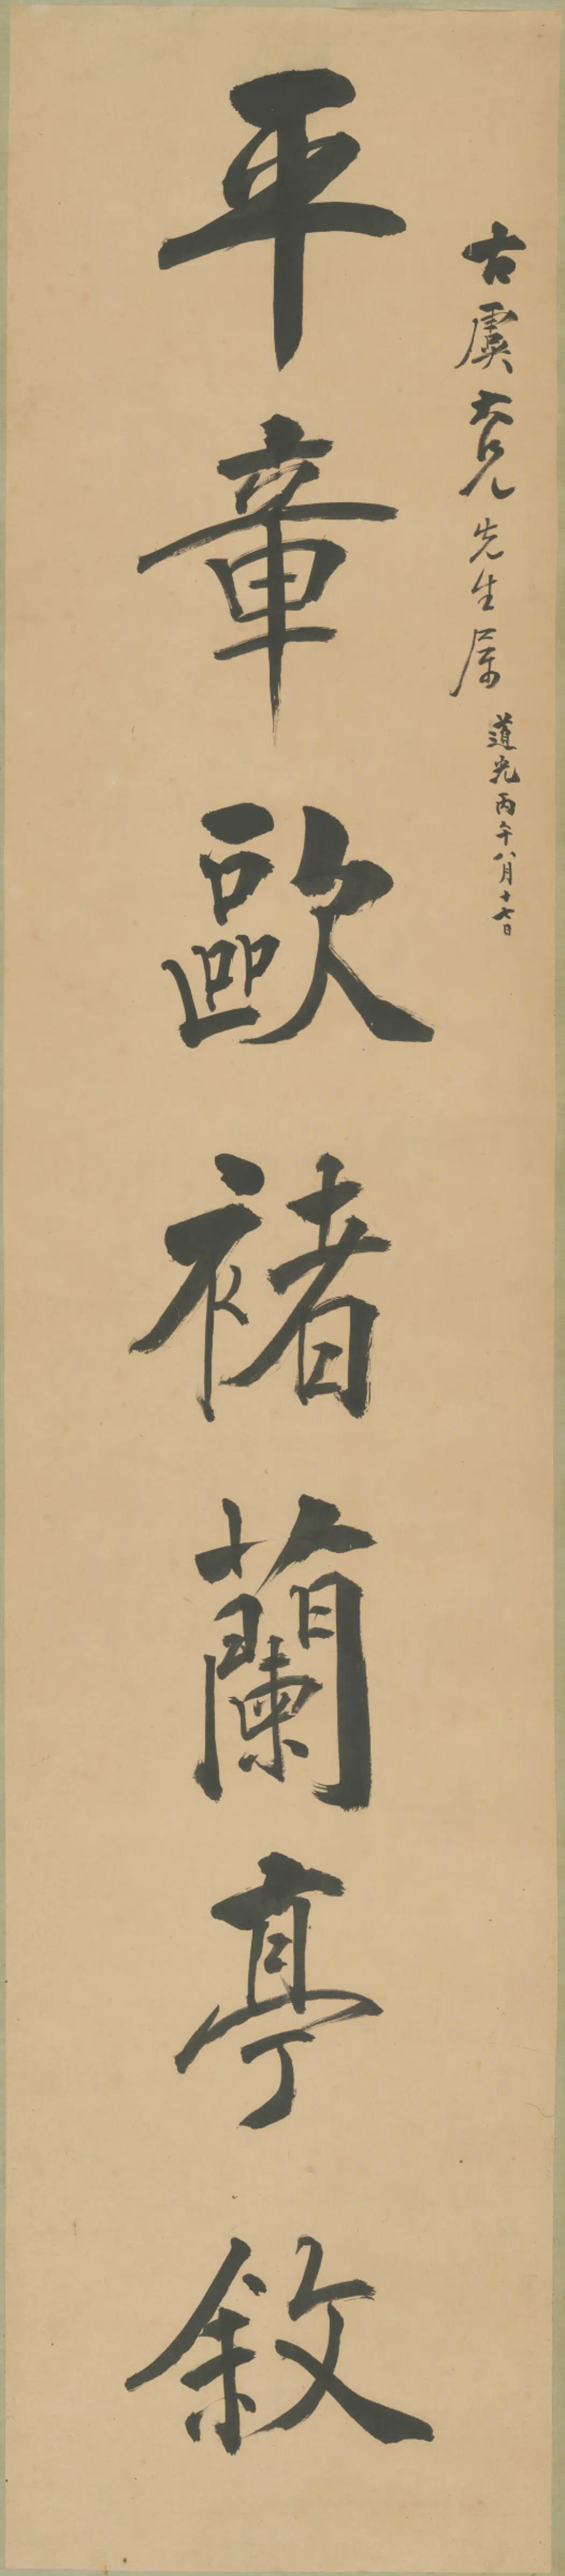 古虞大兄先生属 道光丙午八月十七日
平章歐褚蘭亭敘